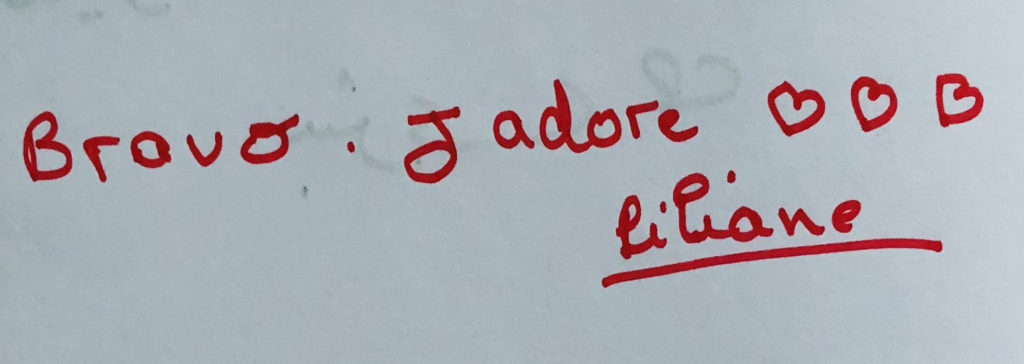 Bravo. J adore ♡♡♡
Liliane